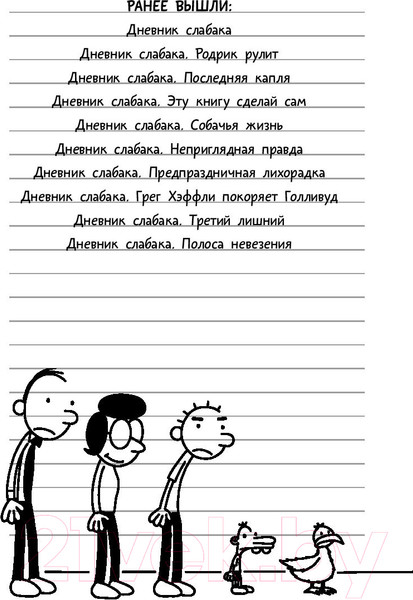 РАНЕЕ ВЫШЛИ:
Дневник слабака
Дневник слабака. Родрик рулит
Дневник слабака. Последняя капля
Дневник слабака. Эту книгу сделай сам
Дневник слабака. Собачья жизнь
Дневник слабака. Неприглядная правда
Дневник слабака. Предпраздничная лихорадка
Дневник слабака. Грег Хэффли покоряет Голливуд
Дневник слабака. Третий лишний
Дневник слабака. Полоса невезения
21vek.by